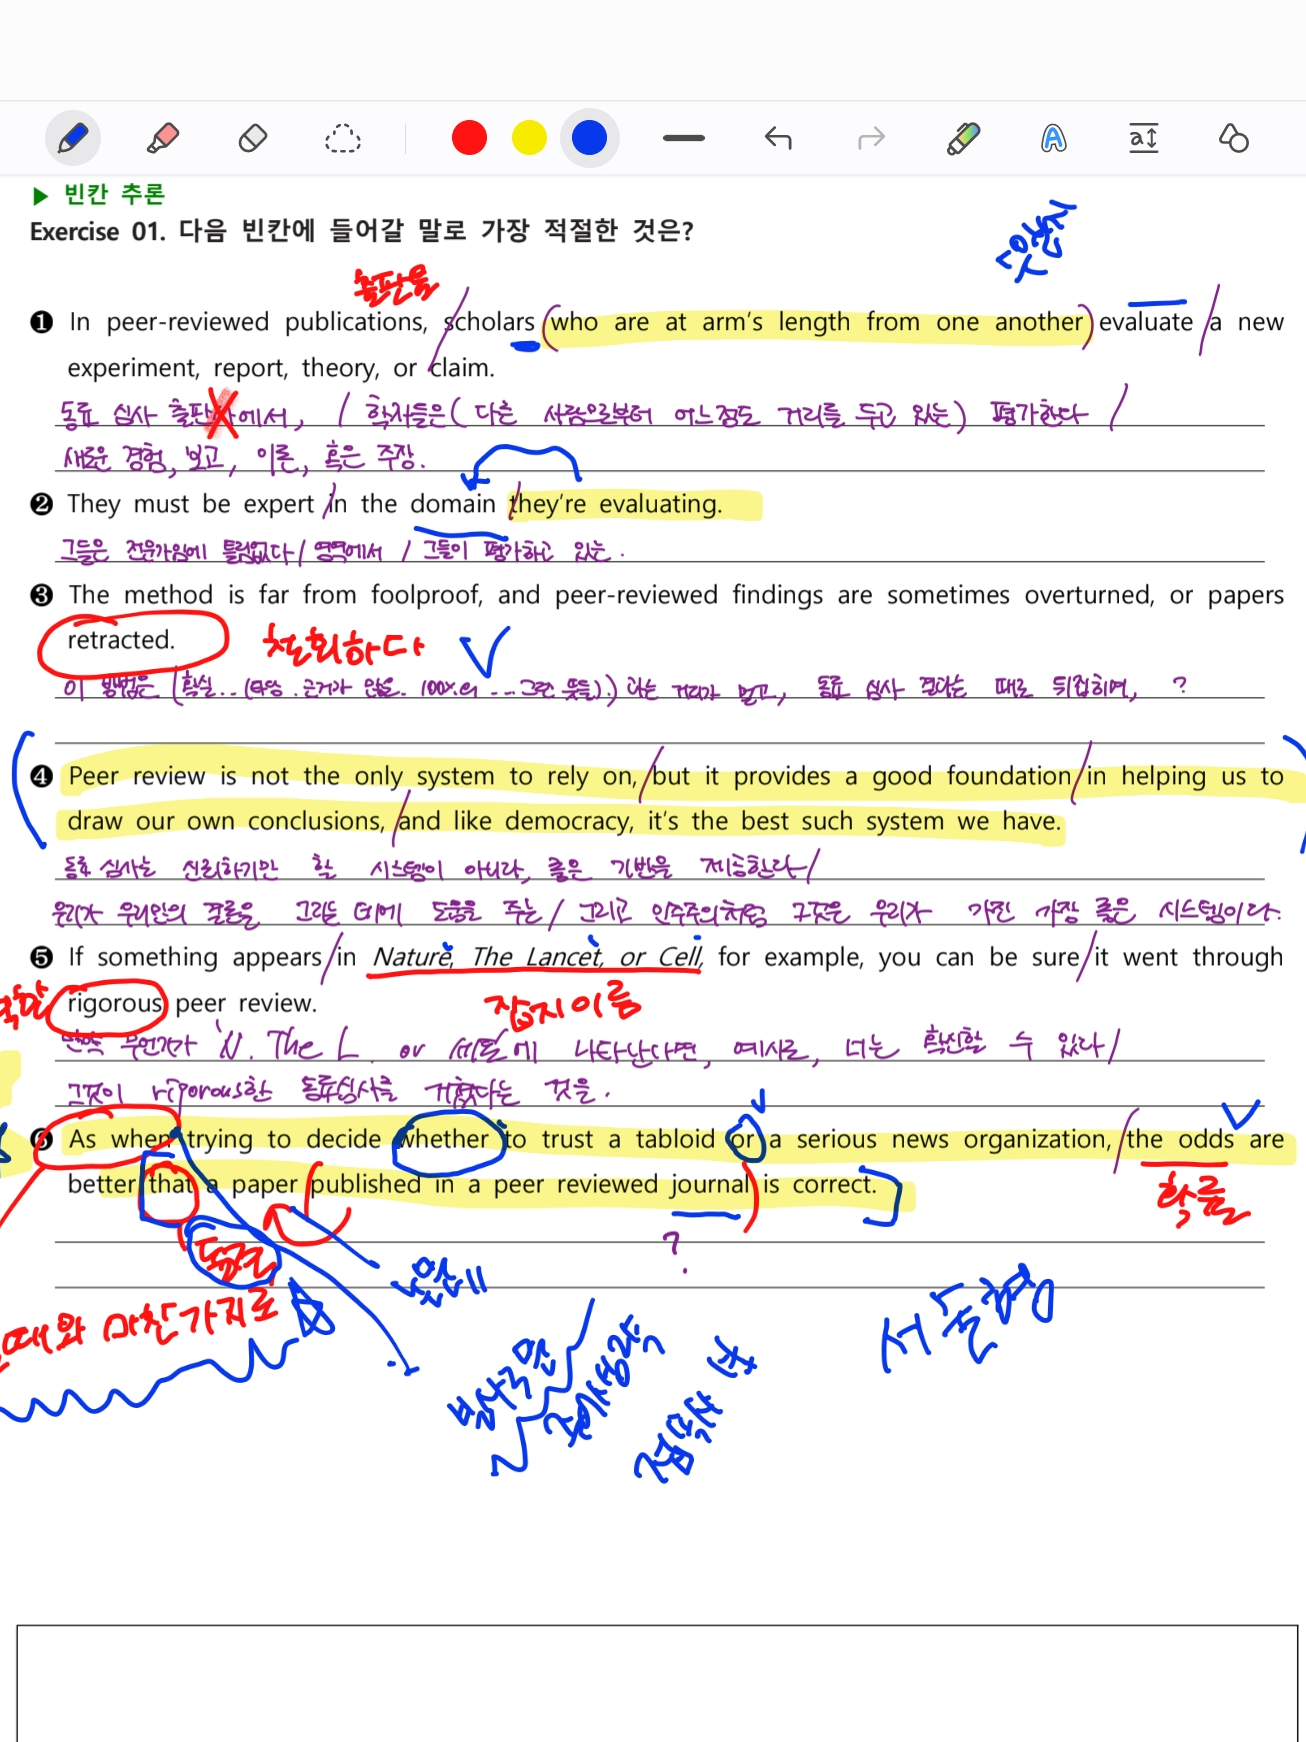 ▶ 빈칸 추론
Exercise 01. 다음 빈칸에 들어갈 말로 가장 적절한 것은?
출판물
❶ In peer-reviewed publications, scholars (who are at arm's length from one another) evaluate a new
experiment, report, theory, or claim.
동료 심사 출판사에서, / 학자들은 ( 다른 사람으로부터 어느정도 거리를 두고 있는 ) 평가한다 /
새로운 경험, 보고, 이론, 혹은 주장.
❷ They must be expert in the domain they're evaluating.
그들은 전문가임에 틀림없다 / 영역에서 / 그들이 평가하고 있는.
❸ The method is far from foolproof, and peer-reviewed findings are sometimes overturned, or papers
retracted.
철회하다
이 방법은 (확실.. 근거가 100%의 ... 그런 뜻들)는 거리가 멀고, 동료 심사 결과는 때로 뒤집히며, ?
❹ Peer review is not the only system to rely on, but it provides a good foundation in helping us to
draw our own conclusions, and like democracy, it's the best such system we have.
동료 심사는 신뢰하기만 할 시스템이 아니라, 좋은 기반을 제공한다 /
우리가 우리만의 결론을 그리는 데에 도움을 주는 / 그리고 민주주의처럼 그것은 우리가 가진 가장 좋은 시스템이다.
❺ If something appears in Nature, The Lancet, or Cell, for example, you can be sure it went through
rigorous peer review.
잡지이름
만약 무언가가 N. The L. or 세포에 나타난다면, 예시로, 너는 확신할 수 있다 /
그것이 rigorous한 동료심사를 거쳤다는 것을.
❻ As when trying to decide whether to trust a tabloid or a serious news organization, the odds are
better that a paper published in a peer reviewed journal is correct.
확률
?
동격
때와 마찬가지로
분사구문
주어생략
접속사
서술형